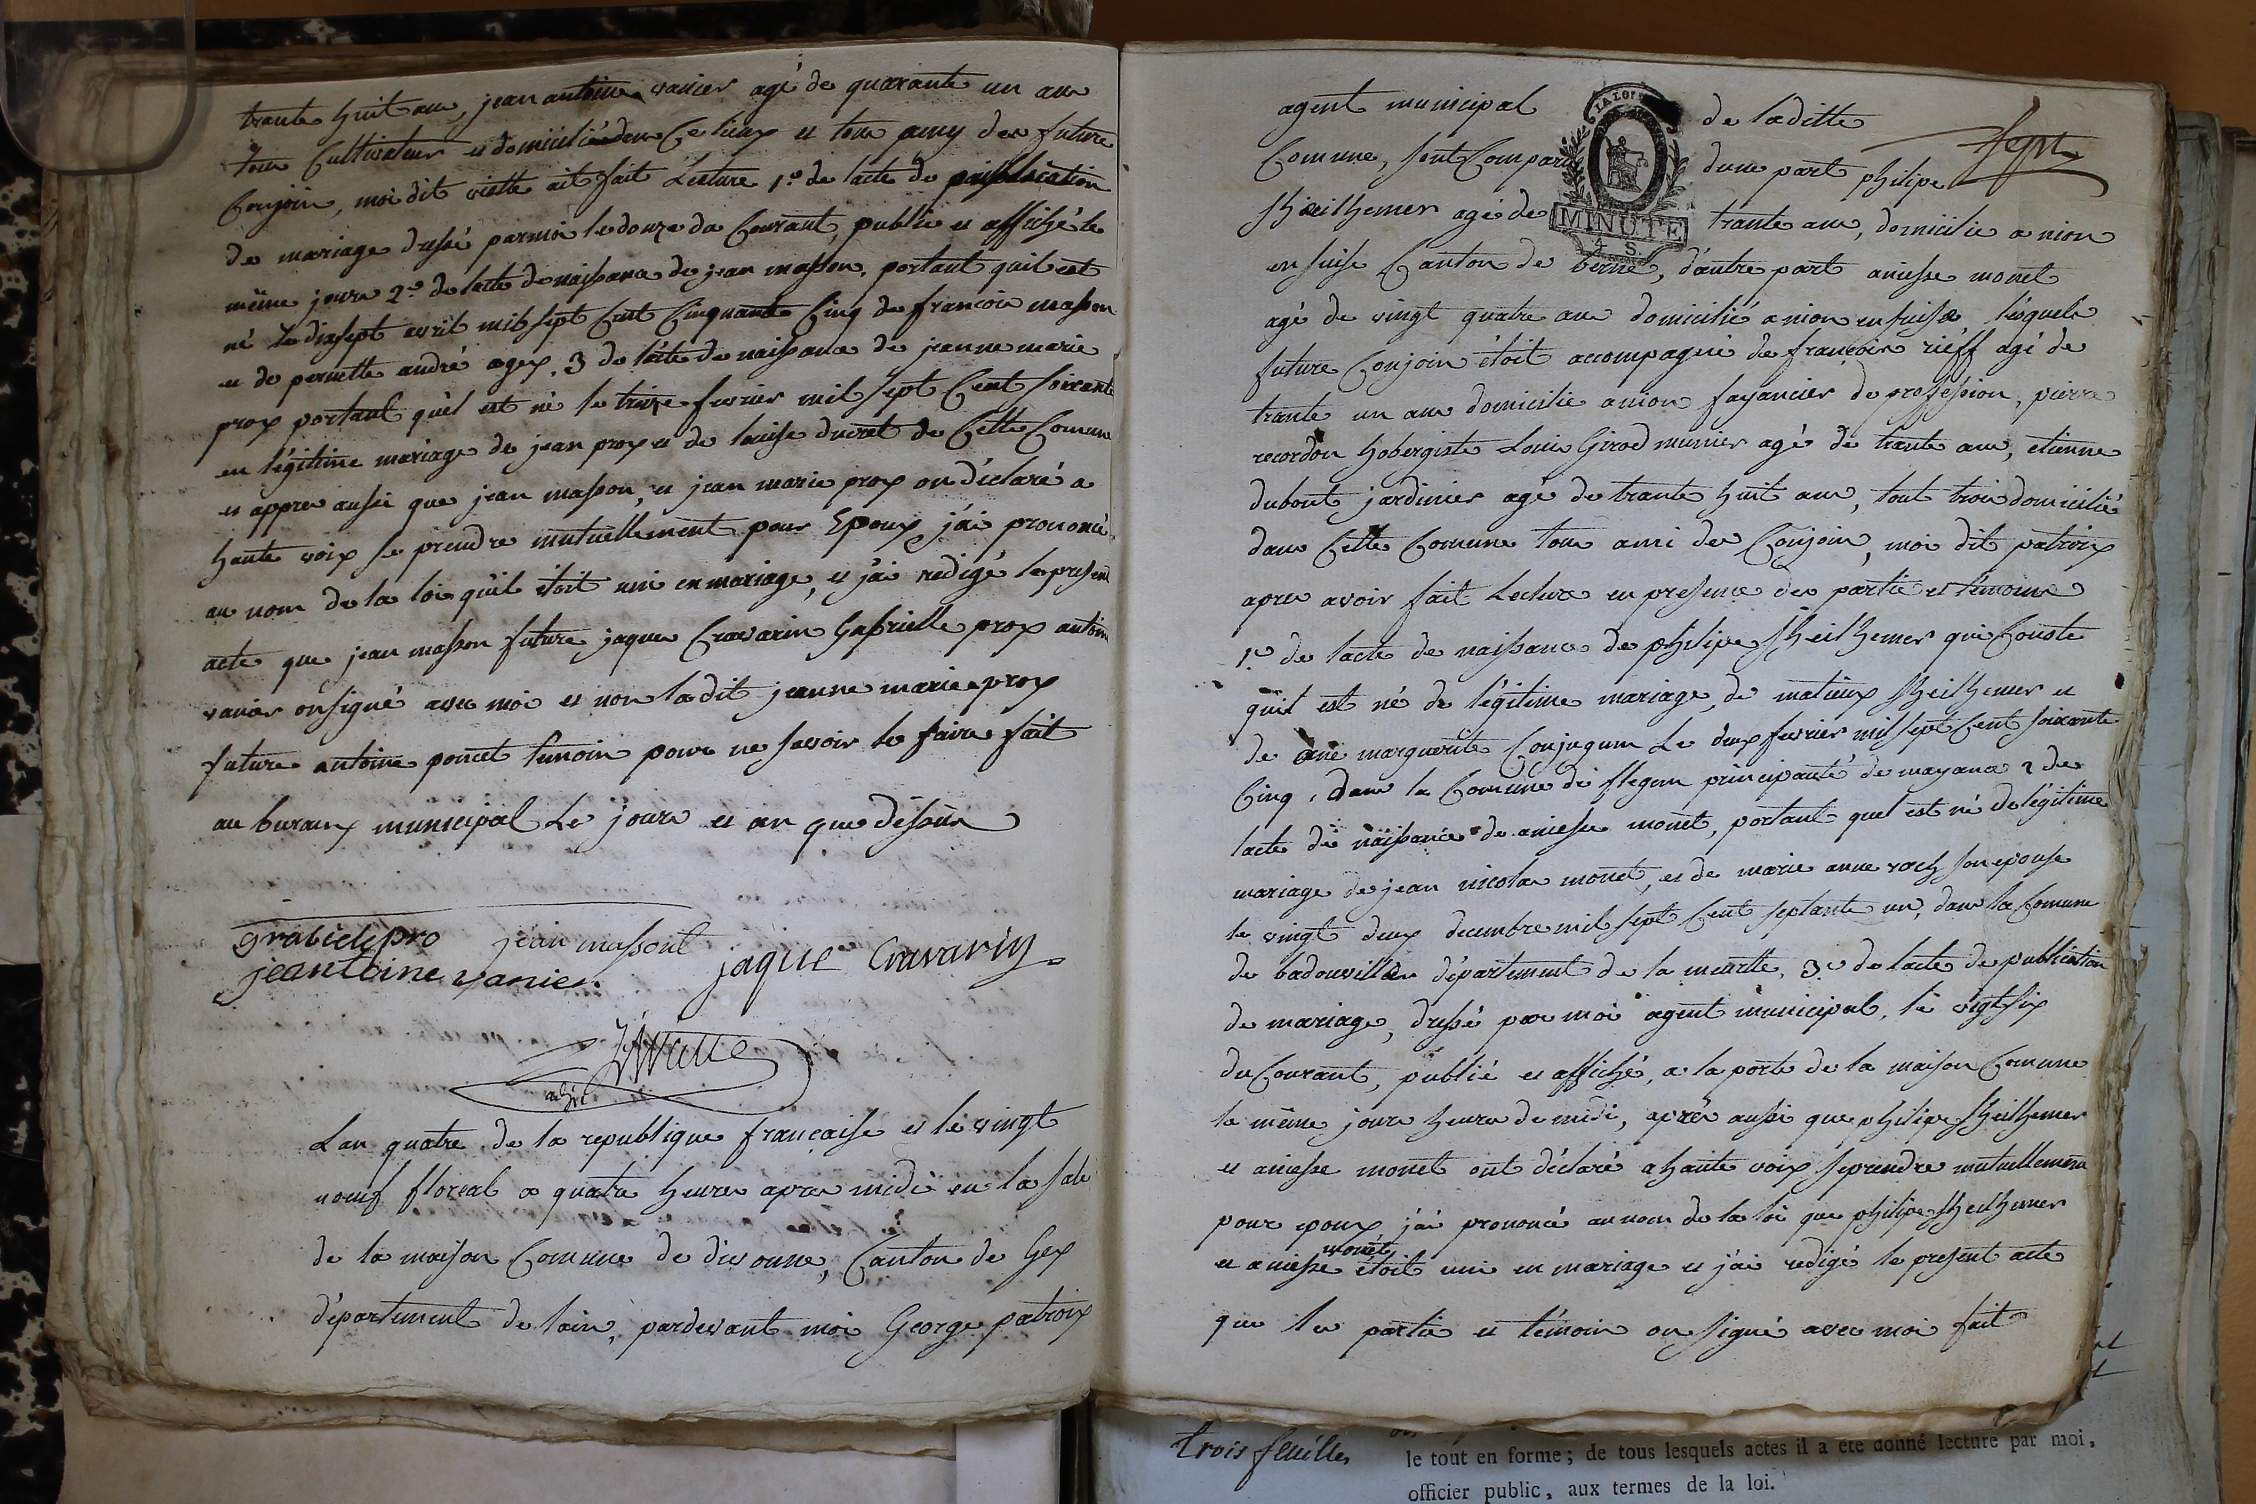 trante huit ans, jean antoine vanier agé de quarante un ans
tous Cultivateurs et domicilié dans Ce lieux et tous amy des future
Conjoin, moi dit viette ait fait Lecture 1.º de lacte de publication
de mariage dressé parmoi le douze du Courant, publie et affiché le
même joure 2.º de lacte de naissance de jean masson, portant quil est
né le disept avril mil sept Cent Cinquante Cinq de francoin masson
et de pernette andré agex. 3 de lacte de naissance de jeanne marie
prox portant quèl est né le treize fevrier mil sept Cent soixante
en légitime mariage de jean prox et de louise ducret de Cette Comune
et appres aussi que jean masson, et jean marie prox on déclaré a
haute voix se prendre mutuellement pour Epoux j'ai prononcé
au nom de la loi quil étoit uni en mariage, et j'ai redigé le present
acte que jean masson future jaques Cravarin Gabrielle prox antoine
vanier on signé avec moi et non ladit jeanne marie prox
future antoine poncet temoin pour ne savoir le faire fait
au buraux municipal Le joure et an que déssus
grabiel pro jean massont jaque Cravarin
jeantoine vanier
Viette
adjoint
Lan quatre de la republique française et lé vingt
neuf floreal a quatre heures apres midi en la sale
de la maison Comune de divonne, Canton de Gex
département de lain, pardevant moi George patroix
agent municipal de laditte
sept
Comune, sont Comparu dune part philipe
Sheilhemer agé de trante ans, domicilie a nion
en suise Canton de berne, d'autre part aniesse monet
agé de vingt quatre ans domicilié a nion en suise lésquels
future Conjoin étoit accompagné de francoin rieff agé de
trante un ans domicilie a nion fayancier de profession, pierre
recordon hobergiste Louis Girod munier agé de trante ans, etienne
dubout jardinier agé de trante huit ans, tout trois domicilié
dans Cette Comune tous ami des Conjoin, moi dit patroix
apres avoir fait Lecture en presence des partie et témoins
1.º de lacte de naissance de philipe Sheilhemer qui Conste
quil est né de légitime mariage de matieux Sheilhemer et
de ane marguerite Conjugum Le deux fevrier mil sept Cent soixante
Cinq, dans la Comune de flegem principauté de mayance 2 de
lacte de naissance de aniesse monet, portant quel est né de légitime
mariage de jean nicolas monet, et de marie anne roch son epouse
le vingt deux decembre mil sept Cent septante un, dans la Comune
de badouviller département de la meurtte, 3.º de lacte de publication
de mariage, dressé par moi agent municipal, le vigt six
du Courant, publié et affiché, a la porte de la maison Comune
le même joure heure de midi, aprèr aussi que philipe Sheilhemer
et aniesse monet ont déclaré a haute voix se prendre mutuellement
pour epoux j'ai prononcé au nom de la loi que philipe Sheilhemer
et aniesse monet étoit uni en mariage et j'ai redigé le present acte
que les partie et témoin on signé avec moi fait
LA LOI
MINUTE
4 S.
trois feuilles
le tout en forme; de tous lesquels actes il a été donné lecture par moi,
officier public, aux termes de la loi.